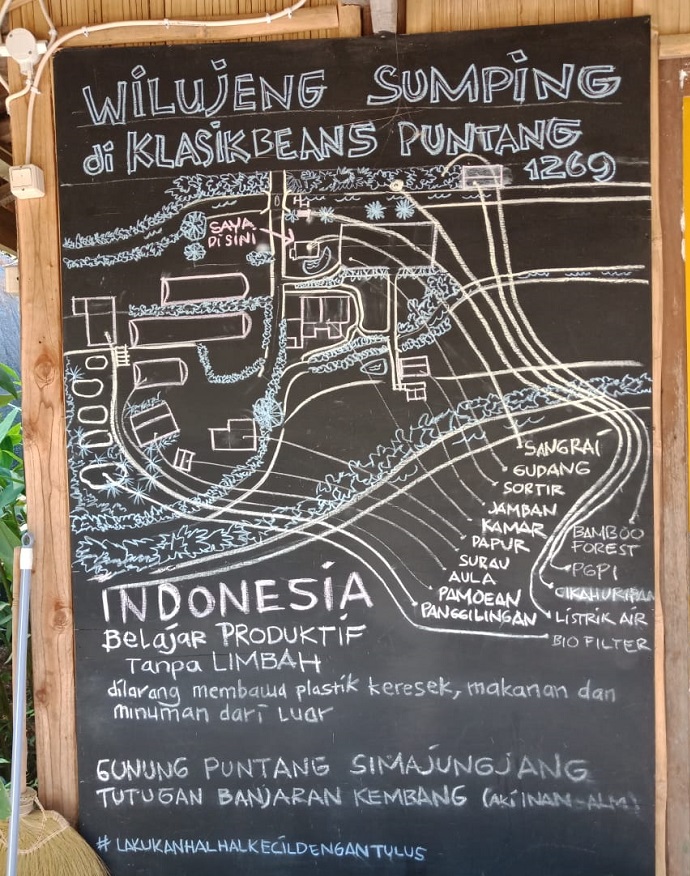 WILUJENG SUMPING
di KLASIKBEANS PUNTANG
1269
SAYA
DISINI
SANGRAI
GUDANG
SORTIR
JAMBAN
KAMAR
DAPUR
SURAU
AULA
PAMOEAN
PANGGILINGAN
BAMBOO
FOREST
PGPI
CIKAHURIPAN
LISTRIK AIR
BIO FILTER
INDONESIA
BELAJAR PRODUKTIF
Tanpa LIMBAH
dilarang membawa plastik keresek, makanan dan
minuman dari Luar
GUNUNG PUNTANG SIMAJUNGJANG
TUTUGAN BANJARAN KEMBANG (AKI INAN-ALM)
# LAKUKANHALHALKECILDENGANTULUS